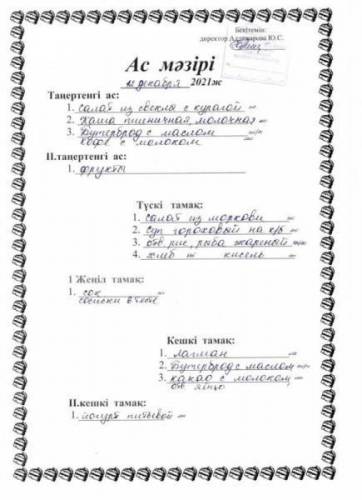 Бекітемін:
директор Ю.С.
Ас мәзірі
декабря 2021ж
Таңертенгі ас:
1. салат из свеклы с курагой
2. Каша пшеничная, молочная
3. Бутерброд с маслом
кофе с молоком
II.таңертенгі ас:
1. фрукты
Түскі тамақ:
1. салат из моркови
2. суп гороховый на к/б
3. отв рис, рыба жареный
4. хлеб кисель
1 Жеңіл тамақ:
1. сок
сосиски в тесте
Кешкі тамақ:
1. лагман
2. Бутерброд с маслом
3. какао с молоком,
отв яйцо
II.кешкі тамақ:
1. йогурт питьевой